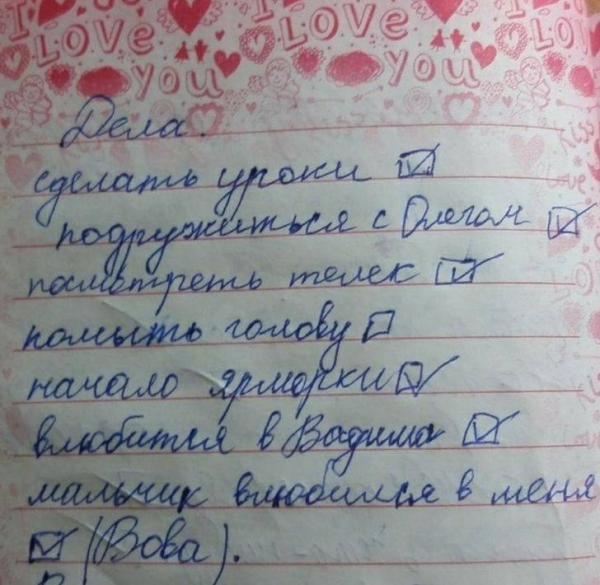 I LOVE YOU I LOVE YOU I LO
Дела.
сделать уроки ☑
подружиться с Олегом ☑
посмотреть телек ☑
помыть голову ☐
начало ярморки ☑
влюбится в Вадима ☑
мальчик влюбился в меня
☑ (Вова).